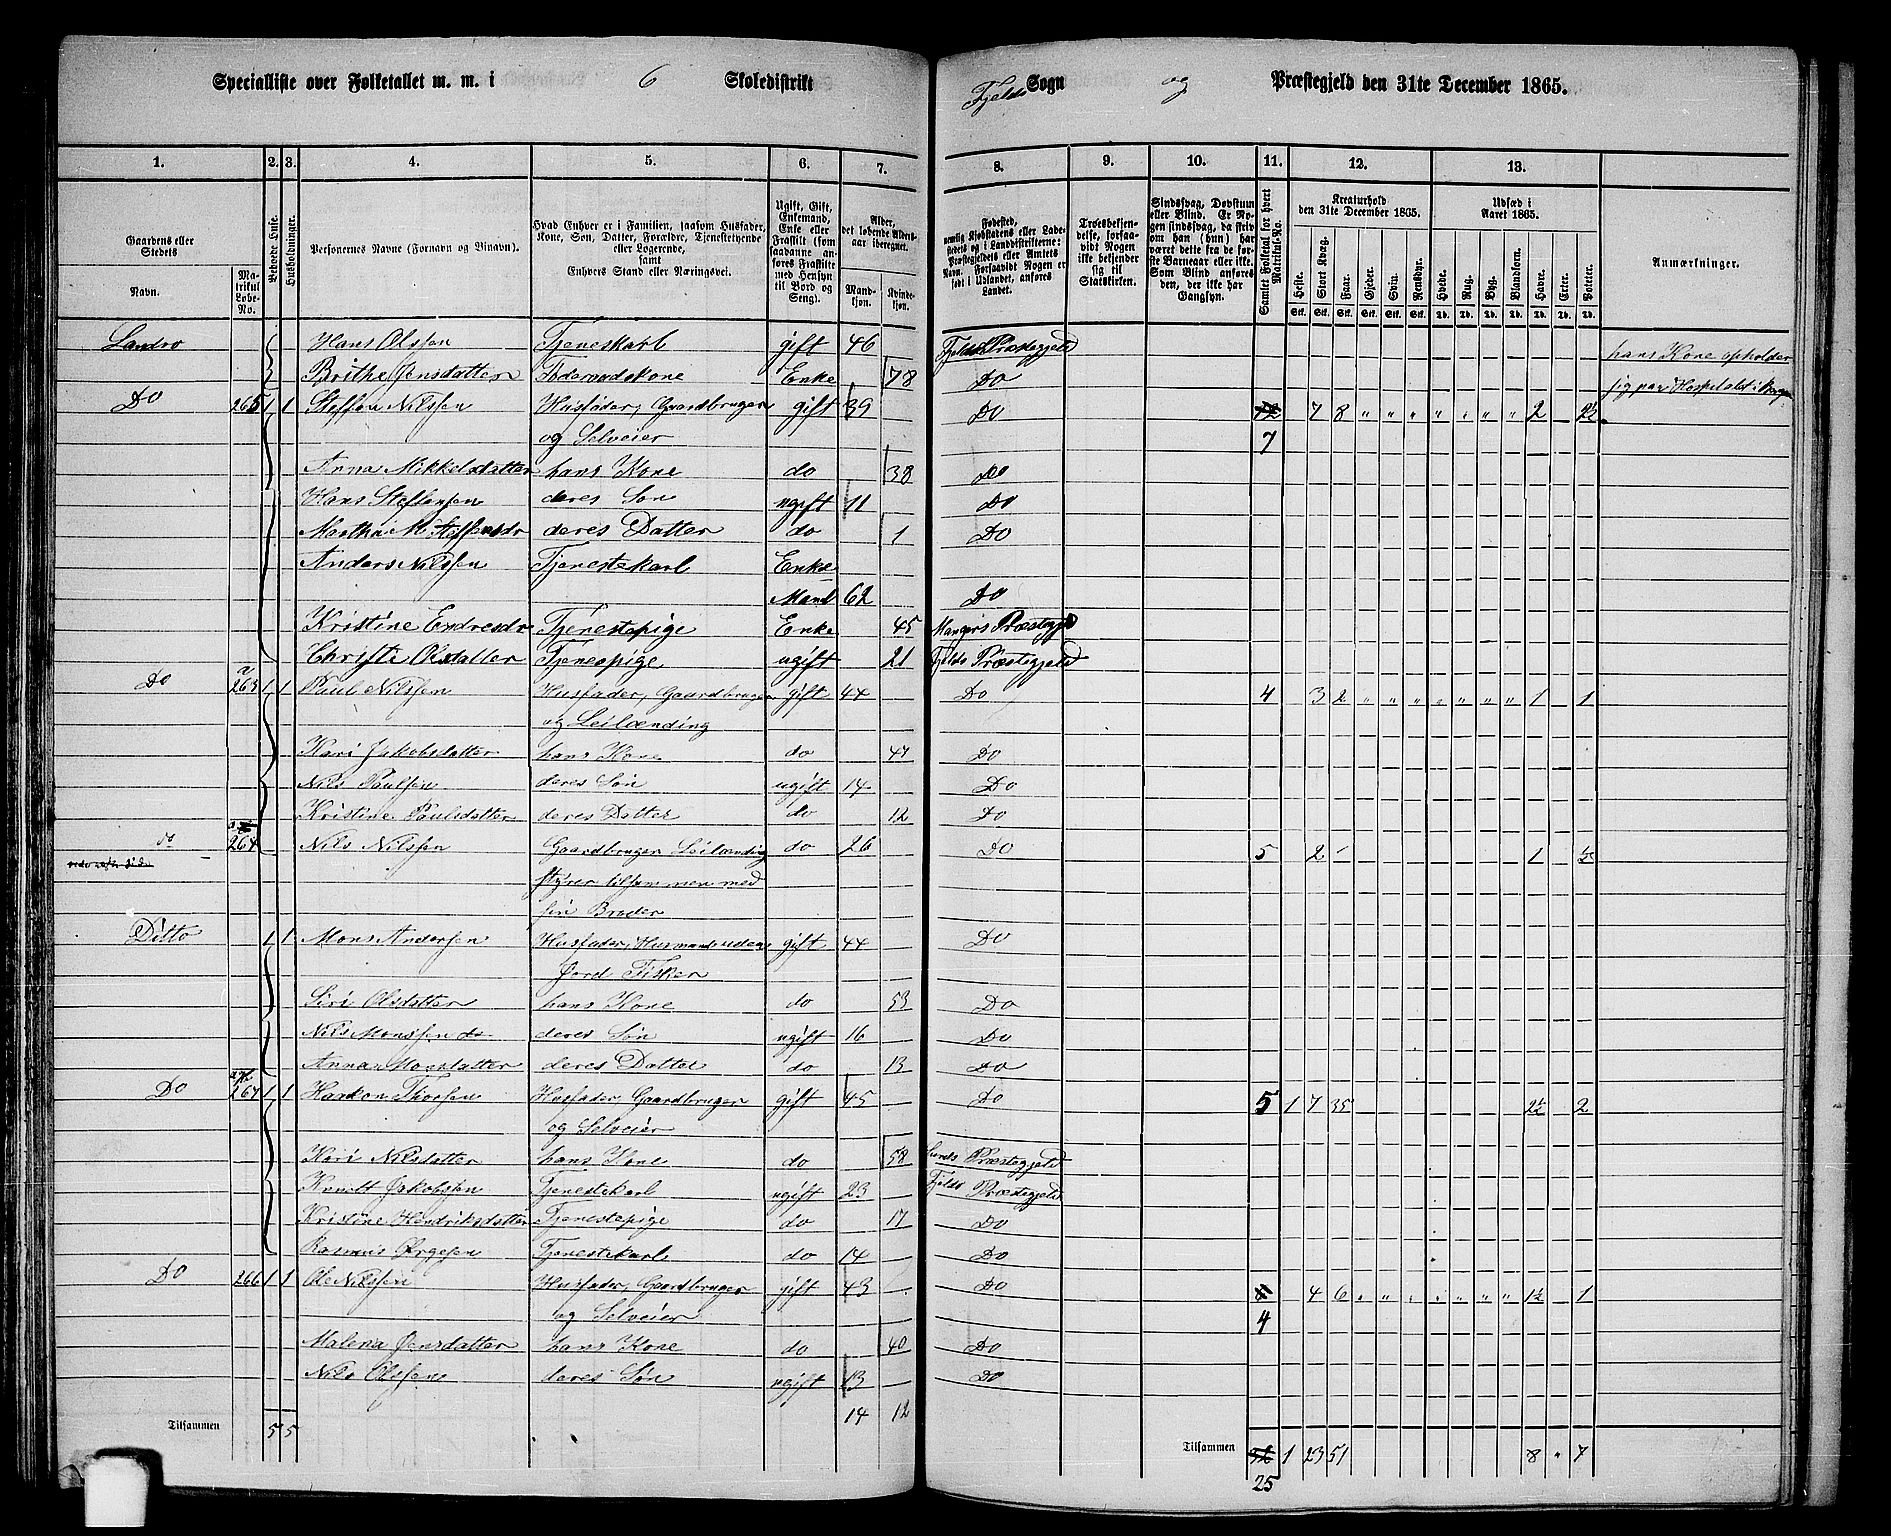 Specialliste over Folketallet m. m. i 6 Skoledistrikt Fjelds Sogn og Præstegjeld den 31te December 1865.
1. 2. 3. 4. 5. 6. 7. 8. 9. 10. 11. 12. 13.
Gaardens eller Stedets Navn. Matrikul Løbe-No. Beboede Huse. Husholdninger.
Personernes Navne (Fornavn og Tilnavn).
Hvad Enhver er i Familien, saasom Husfader, Kone, Søn, Datter, Forældre, Tjenestetyende eller Logerende, samt Enhvers Stand eller Næringsvei.
Ugift, Gift, Enkemand, Enke eller Fraskilt (som saadanne anføres Fraskilte med Hensyn til Bord og Seng).
Alder, det løbende Aldersaar iberegnet. Mandkjøn. Kvindekjøn.
Fødested, nemlig Kjøbstadens eller Ladestedets og i Landdistrikterne: Præstegjeldets eller Amtets Navn. Forsaavidt Nogen er født i Udlandet, anføres Landet.
Troesbekjendelse, forsaavidt Nogen ikke bekjender sig til Statskirken.
Sindssvag, Døvstum eller Blind. Er Nogen sindssvag, da skriv om han (hun) har været dette fra de første Barneaar eller ikke. Som Blind anføres den, der ikke har Gangsyn.
Samlet Folketal for hvert Matrikul-No.
Kreaturhold den 31te December 1865.
Heste. Stort Kvæg. Faar. Gjeder. Sviin. Rensdyr.
Udsæd i Aaret 1865.
Hvede. Rug. Byg. Blandkorn. Havre. Erter. Poteter.
Anmærkninger.
Stk. Stk. Stk. Stk. Stk. Stk. Td. Td. Td. Td. Td. Td. Td.
Landro Hans Olssen Tjenestkarl gift 46 Fjelds Præstegjeld hans Kone opholder
Brithe Jensdatter Føderaadskone Enke 78 Do sig paa Hospitalet i Bergen
Do 265 1 1 Steffen Nilssen Husfader, Gaardbruger gift 39 Do 12 7 8 " " " " " " " 2 2½
og Selveier 7
Anna Mikkelsdatter hans Kone do 38 Do
Hans Steffensen deres Søn ugift 11 Do
Martha M. Steffensdr deres Datter do 1 Do
Anders Nilssen Tjenestekarl Enke
Mand 62 Do
Kristine Endresdr Tjenestepige Enke 45 Mangers Præstegjeld
Christi Olsdatter Tjenespige ugift 21 Fjelds Præstegjeld
Do 263 a 1 1 Paul Nilssen Husfader, Gaardbruger gift 44 Do 4 3 2 " " " " " " " 1 1
og Leilænding
Kari Jakobsdatter hans Kone do 47 Do
Nils Paulsen deres Søn ugift 14 Do
Kristine Paulsdatter deres Datter do 12 Do
do 264 Nils Nilssen Gaardbruger Leilænding do 26 Do 5 2 1 ½
styrer tilsammen med
sin Broder
Ditto 1 1 Mons Andersen Husfader, Husmand uden gift 44 Do
Jord Fisker
Siri Olsdatter hans Kone do 53 Do
Nils Monssen do deres Søn ugift 16 Do
Anna Monsdatter deres Datter do 13 Do
Do 267 1 1 Haakon Thorsen Husfader, Gaardbruger gift 45 Do 5 1 7 35 2½ 2
og Selveier
Kari Nilsdatter hans Kone do 58 Sunds Præstegjeld
Knudt Jakobsen Tjenestekarl ugift 23 Fjelds Præstegjeld
Kristine Hendriksdatter Tjenestepige do 17 Do
Rasmus Ørgesen Tjenestekarl do 14 Do
Do 266 1 1 Ole Nilssen Husfader, Gaardbruger gift 43 Do 4 6 " " " " " " " 1½ 1
og Selveier 4
Malena Jensdatter hans Kone do 40 Do
Nils Olssen deres Søn ugift 13 Do
14 12
Tilsammen 5 5 Tilsammen 32 1 23 51 8 " 7
25